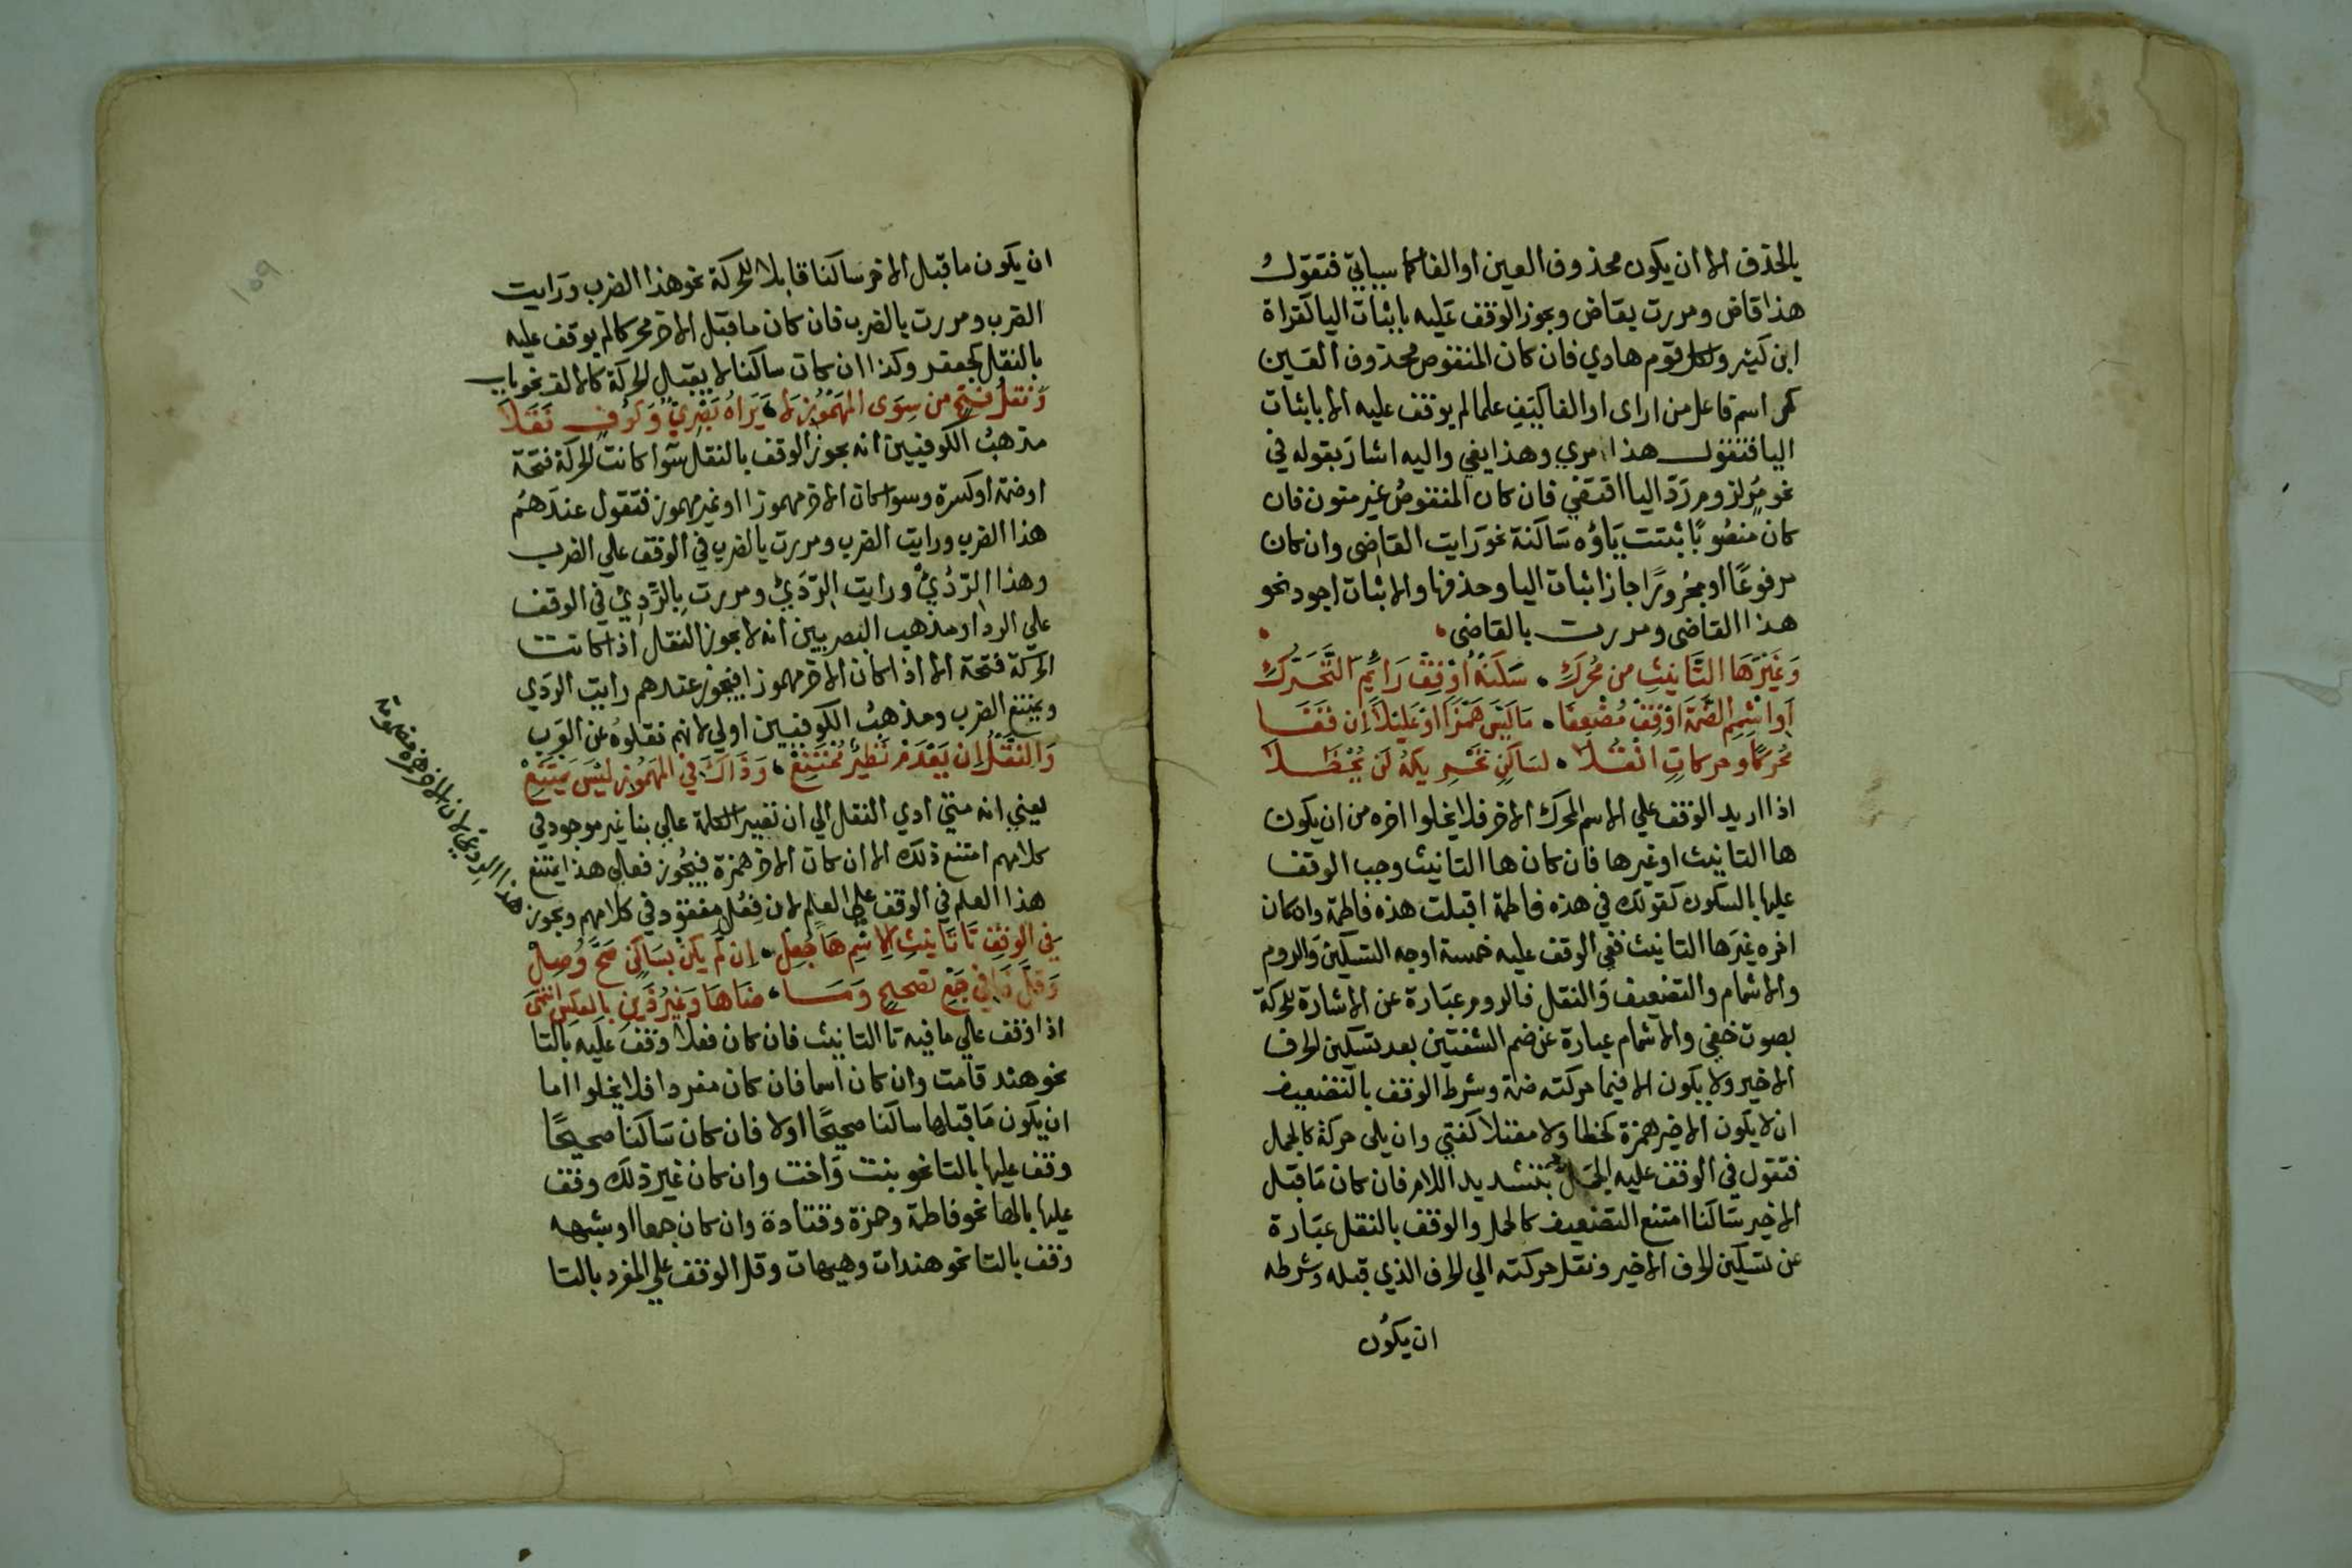 بالحذف الا ان يكون محذوف العين او الفا كما سياتي فتقول
هذا قاض ومررت بقاض ويجوز الوقف عليه باثبات اليا كقراة
ابن كثير ولكل قوم هادي فان كان المنقوص محذوف العين
كمر اسم فاعل من اراى او الفا كيف علما لم يوقف عليه الا باثبات
اليا فتقول هذا مري وهذا يفي واليه اشار بقوله في
نحو مر لزوم رد اليا اقتفي فان كان المنقوص غير منون فان
كان منصوبا ثبتت ياؤه ساكنة نحو رايت القاضى وان كان
مرفوعا او مجرورا جاز اثبات اليا وحذفها والاثبات اجود نحو
هذا القاضى ومررت بالقاضى
وَغَيْرَهَا التَّانيثِ من مُحَرَكِ • سَكنهُ اوْقِفْ رَائمَ التَّحَرُّكِ
اَوْ اشْمِمِ الضَّمَةَ اوْقِفْ مُضْعِفا • مَا لَيْسَ هَمْزًا اوْ عَليْلاً اِن قَفَا
مُحَركًا وحركاتِ انْقُلا • لسَاكنٍ تحْرِيكهُ لَن يُحْظَلا
اذا اريد الوقف علي الاسم المحرك الاخر فلا يخلوا اخره من ان يكون
ها التانيث او غيرها فان كان ها التانيث وجب الوقف
عليها بالسكون كقولك في هذه فاطمة اقبلت هذه فاطمة وان كان
اخره غير ها التانيث ففي الوقف عليه خمسة اوجه التسكين والروم
والاشمام والتضعيف والنقل فالروم عبارة عن الاشارة للحركة
بصوت خفي والاشمام عبارة عن ضم الشفتين بعد تسكين الحرف
الاخير ولا يكون الا فيما حركته ضمة وشرط الوقف بالتضعيف
ان لا يكون الاخير همزة كخطا ولا معتلا كفتي وان يلى حركة كالجمل
فتقول في الوقف عليه الجمل بتشديد اللام فان كان ما قبل
الاخير ساكنا امتنع التضعيف كالحمل والوقف بالنقل عبارة
عن تسكين الحرف الاخير ونقل حركته الي الحرف الذي قبله وشرطه
ان يكون
ان يكون ما قبل الاخر ساكنا قابلا للحركة نحو هذا الضرب ورايت
الضرب ومررت بالضرب فان كان ما قبل الاخر محركا لم يوقف عليه
بالنقل كجعفر وكذا ان كان ساكنا لا يقبل الحركة كالالف نحو باب
وَنقلُ فتحٍ من سِوَى المهْمُوْزِ لا • يَرَاهُ بَصْرِيٌّ وَكُوفٍ نَقَلاَ
مذهب الكوفيين انه يجوز الوقف بالنقل سوا كانت الحركة فتحة
او ضمة او كسرة وسوا كان الاخر مهموزا او غير مهموز فتقول عندهم
هذا الضرب ورايت الضرب ومررت بالضرب في الوقف علي الضرب
وهذا الردُئ ورايت الردَئ ومررت بالردِئ في الوقف
علي الردا ومذهب البصريين انه لا يجوز النقل اذا كانت
الحركة فتحة الا اذا كان الاخر مهموزا فيجوز عندهم رايت الردي
ويمتنع الضرب ومذهب الكوفيين اولي لانهم نقلوه عن العرب
وَالنقْلُ اِن يَعْدَمْ نَظيْرٌ مُمْتَنِعْ • وَذَاكَ في المهْمُوْزِ ليْسَ يَمْتَنِعْ
يعني انه متي ادي النقل الي ان تصير الكلمة علي بنا غير موجود في
كلامهم امتنع ذلك الا ان كان الاخر همزة فيجوز فعلي هذا يمتنع
هذا العلم في الوقف علي العلم لان فِعُل مفقود في كلامهم ويجوز
هذا الردئ لان الاخر همزة
في الوقفِ تَا تَانيثِ الاسْمِ هَا جُعِلْ • اِن لَم يكنْ بسَاكنٍ صَحَّ وُصِلْ
وَقلَّ ذا في جَمْعِ تصحيحٍ وَمَا • ضَاهَا وَغيْرُ ذَيْنِ بالعكسِ انْتَمَى
اذا اوقف علي ما فيه تا التانيث فان كان فعلا وقف عليه بالتا
نحو هند قامت وان كان اسما فان كان مفردا فلا يخلوا اما
ان يكون ما قبلها ساكنا صحيحًا اولا فان كان ساكنا صحيحًا
وقف عليها بالتا نحو بنت واخت وان كان غير ذلك وقف
عليها بالها نحو فاطمة وحمزة وقتادة وان كان جمعا او شبهه
وقف بالتا نحو هندات وهيهات وقل الوقف علي المفرد بالتا